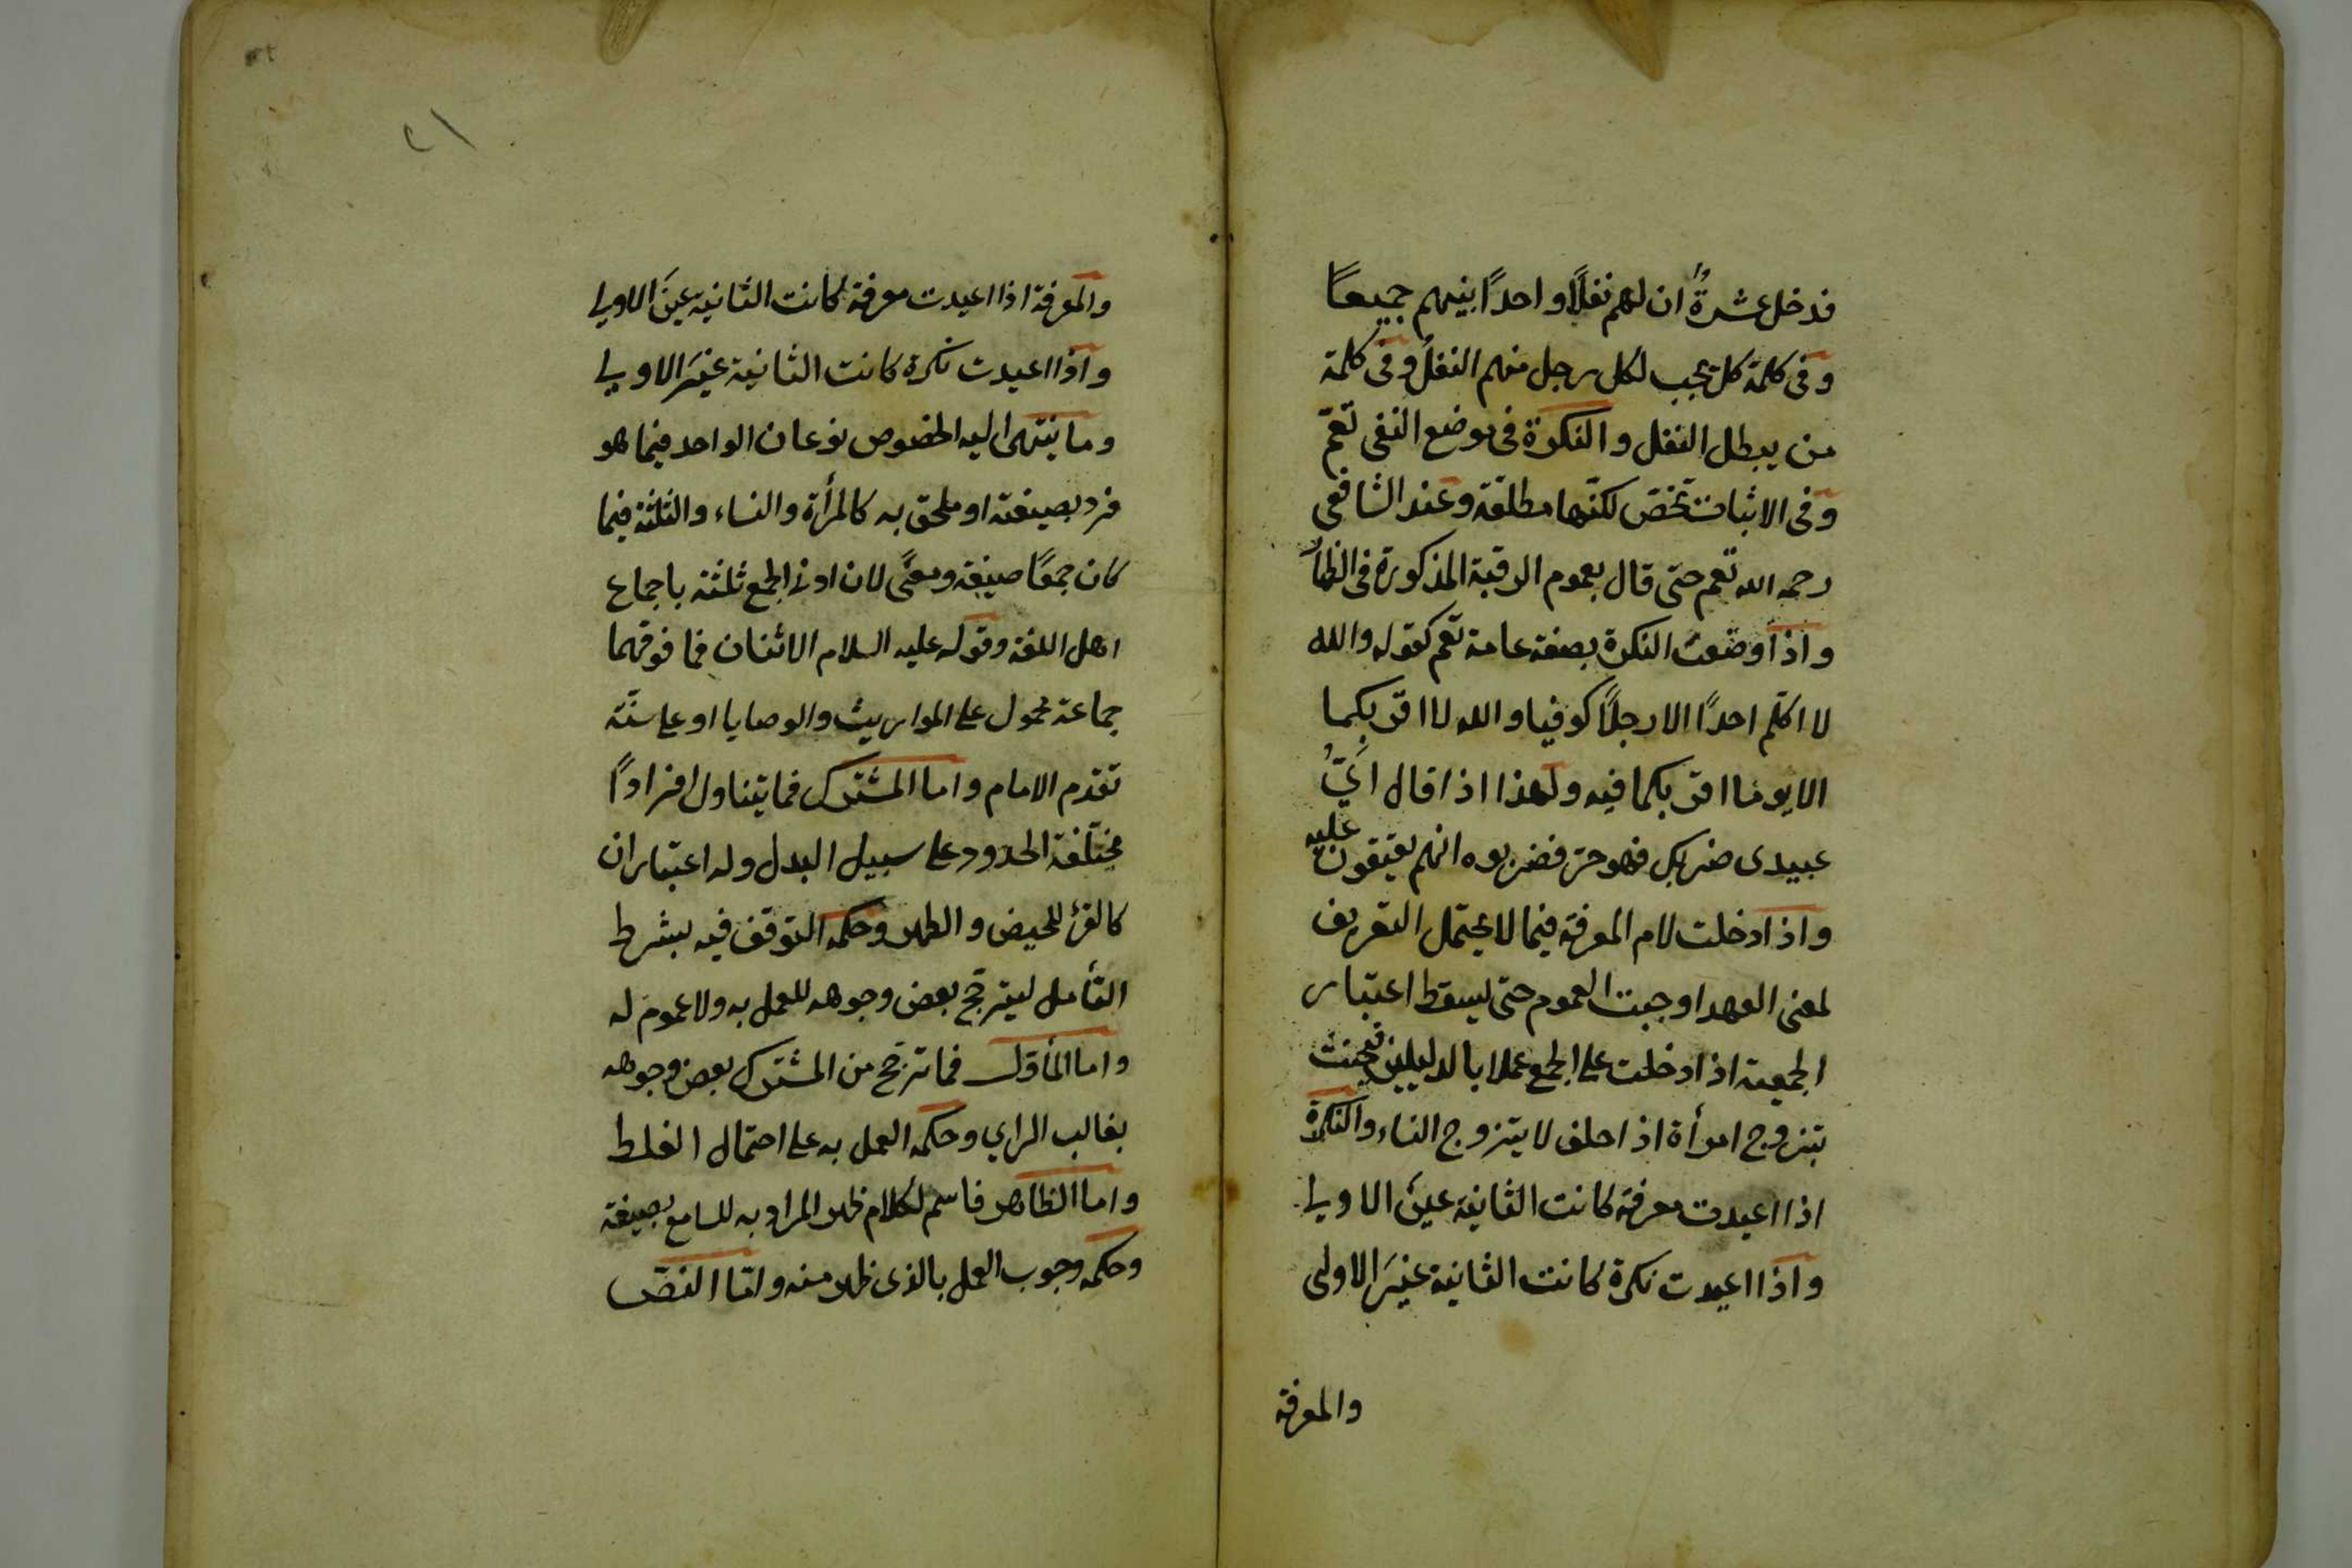 فدخل عشرةٌ ان لهم نفلًا واحدًا بينهم جميعًا
وفى كلمة كل يجب لكل رجل منهم النفل وفى كلمة
من يبطل النفل والنكرة فى موضع النفى تعمّ
وفى الاثبات تخصّ لكنّها مطلقة وعند الشافعى
رحمه الله تعم حتى قال بعموم الرقبة المذكورة فى الظهار
واذا وصفت النكرة بصفة عامة تعم كقوله والله
لا اكلّم احدًا الا رجلًا كوفيا والله لا اقربكما
الا يوما اقربكما فيه ولهذا اذا قال اىُّ
عبيدى ضربك فهو حرّ فضربوه انهم يعتقون عليه
واذا دخلت لام المعرفة فيما لا يحتمل التعريف
لمعنى العهد اوجبت العموم حتى يسقط اعتبار
الجمعية اذا دخلت على الجمع عملا بالدليلين فيحنث
بتزوج امرأة اذا حلف لا يتزوج النساء والنكرة
اذا اعيدت معرفة كانت الثانية عينَ الاولى
واذا اعيدت نكرة كانت الثانية غيرَ الاولى
والمعرفة
٢١
والمعرفة اذا اعيدت معرفة كانت الثانية عينَ الاولى
واذا اعيدت نكرة كانت الثانية غيرَ الاولى
وما ينتهى اليه الخصوص نوعان الواحد فيما هو
فرد بصيغته او ملحق به كالمرأة والنساء والثلثة فيما
كان جمعًا صيغة ومعنًى لان ادنى الجمع ثلثة باجماع
اهل اللغة وقوله عليه السلام الاثنان فما فوقهما
جماعة محمول على المواريث والوصايا او على سنّة
تقدم الامام واما المشترك فما يتناول افرادًا
مختلفة الحدود على سبيل البدل وله اعتباران
كالقرء للحيض والطهر وحكمه التوقف فيه بشرط
التأمل ليترجّح بعض وجوهه للعمل به ولا عموم له
واما المأوّل فما ترجّح من المشترك بعض وجوهه
بغالب الراي وحكمه العمل به على احتمال الغلط
واما الظاهر فاسم لكلام ظهر المراد به للسامع بصيغة
وحكمه وجوب العمل بالذى ظهر منه وامّا النصّ